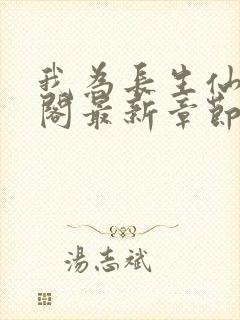 我為長生仙
閣最新章節
湯志斌